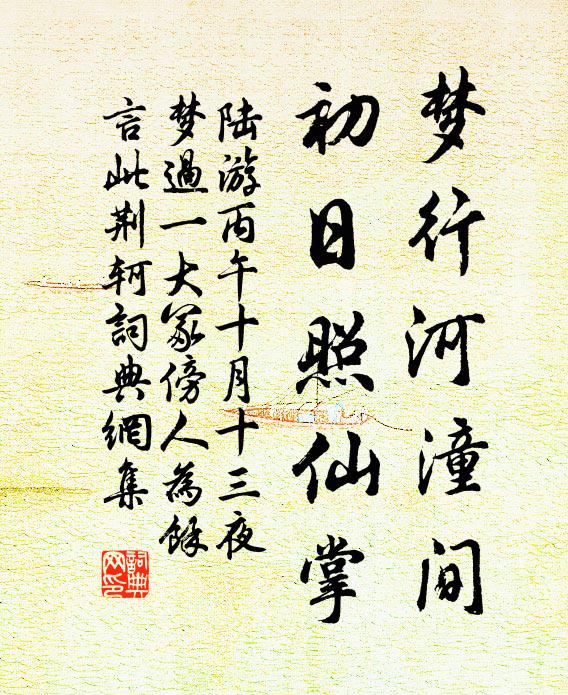 梦行河潼间
初日照仙掌
陆游丙午十月十三夜
梦過一大冢傍人為餘
言此荆轲詞典網集
詞典网印